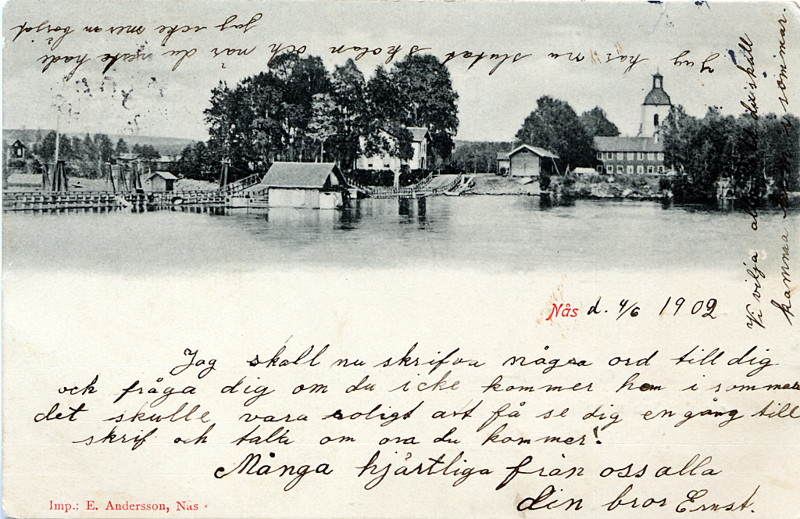 Nås d. 4/6 1902
Jag skall nu skrifva några ord till dig
och fråga dig om du icke kommer hem i sommar
det skulle vara roligt att få se dig en gång till
skrif och tala om ora du kommer!
Många hjärtliga från oss alla
din bror Ernst.
Imp.: E. Andersson, Nås
Jag har nu slutat skolan och när du reste hade
jag icke mer än börjat
Vi vilja alla du skull
komma i sommar.